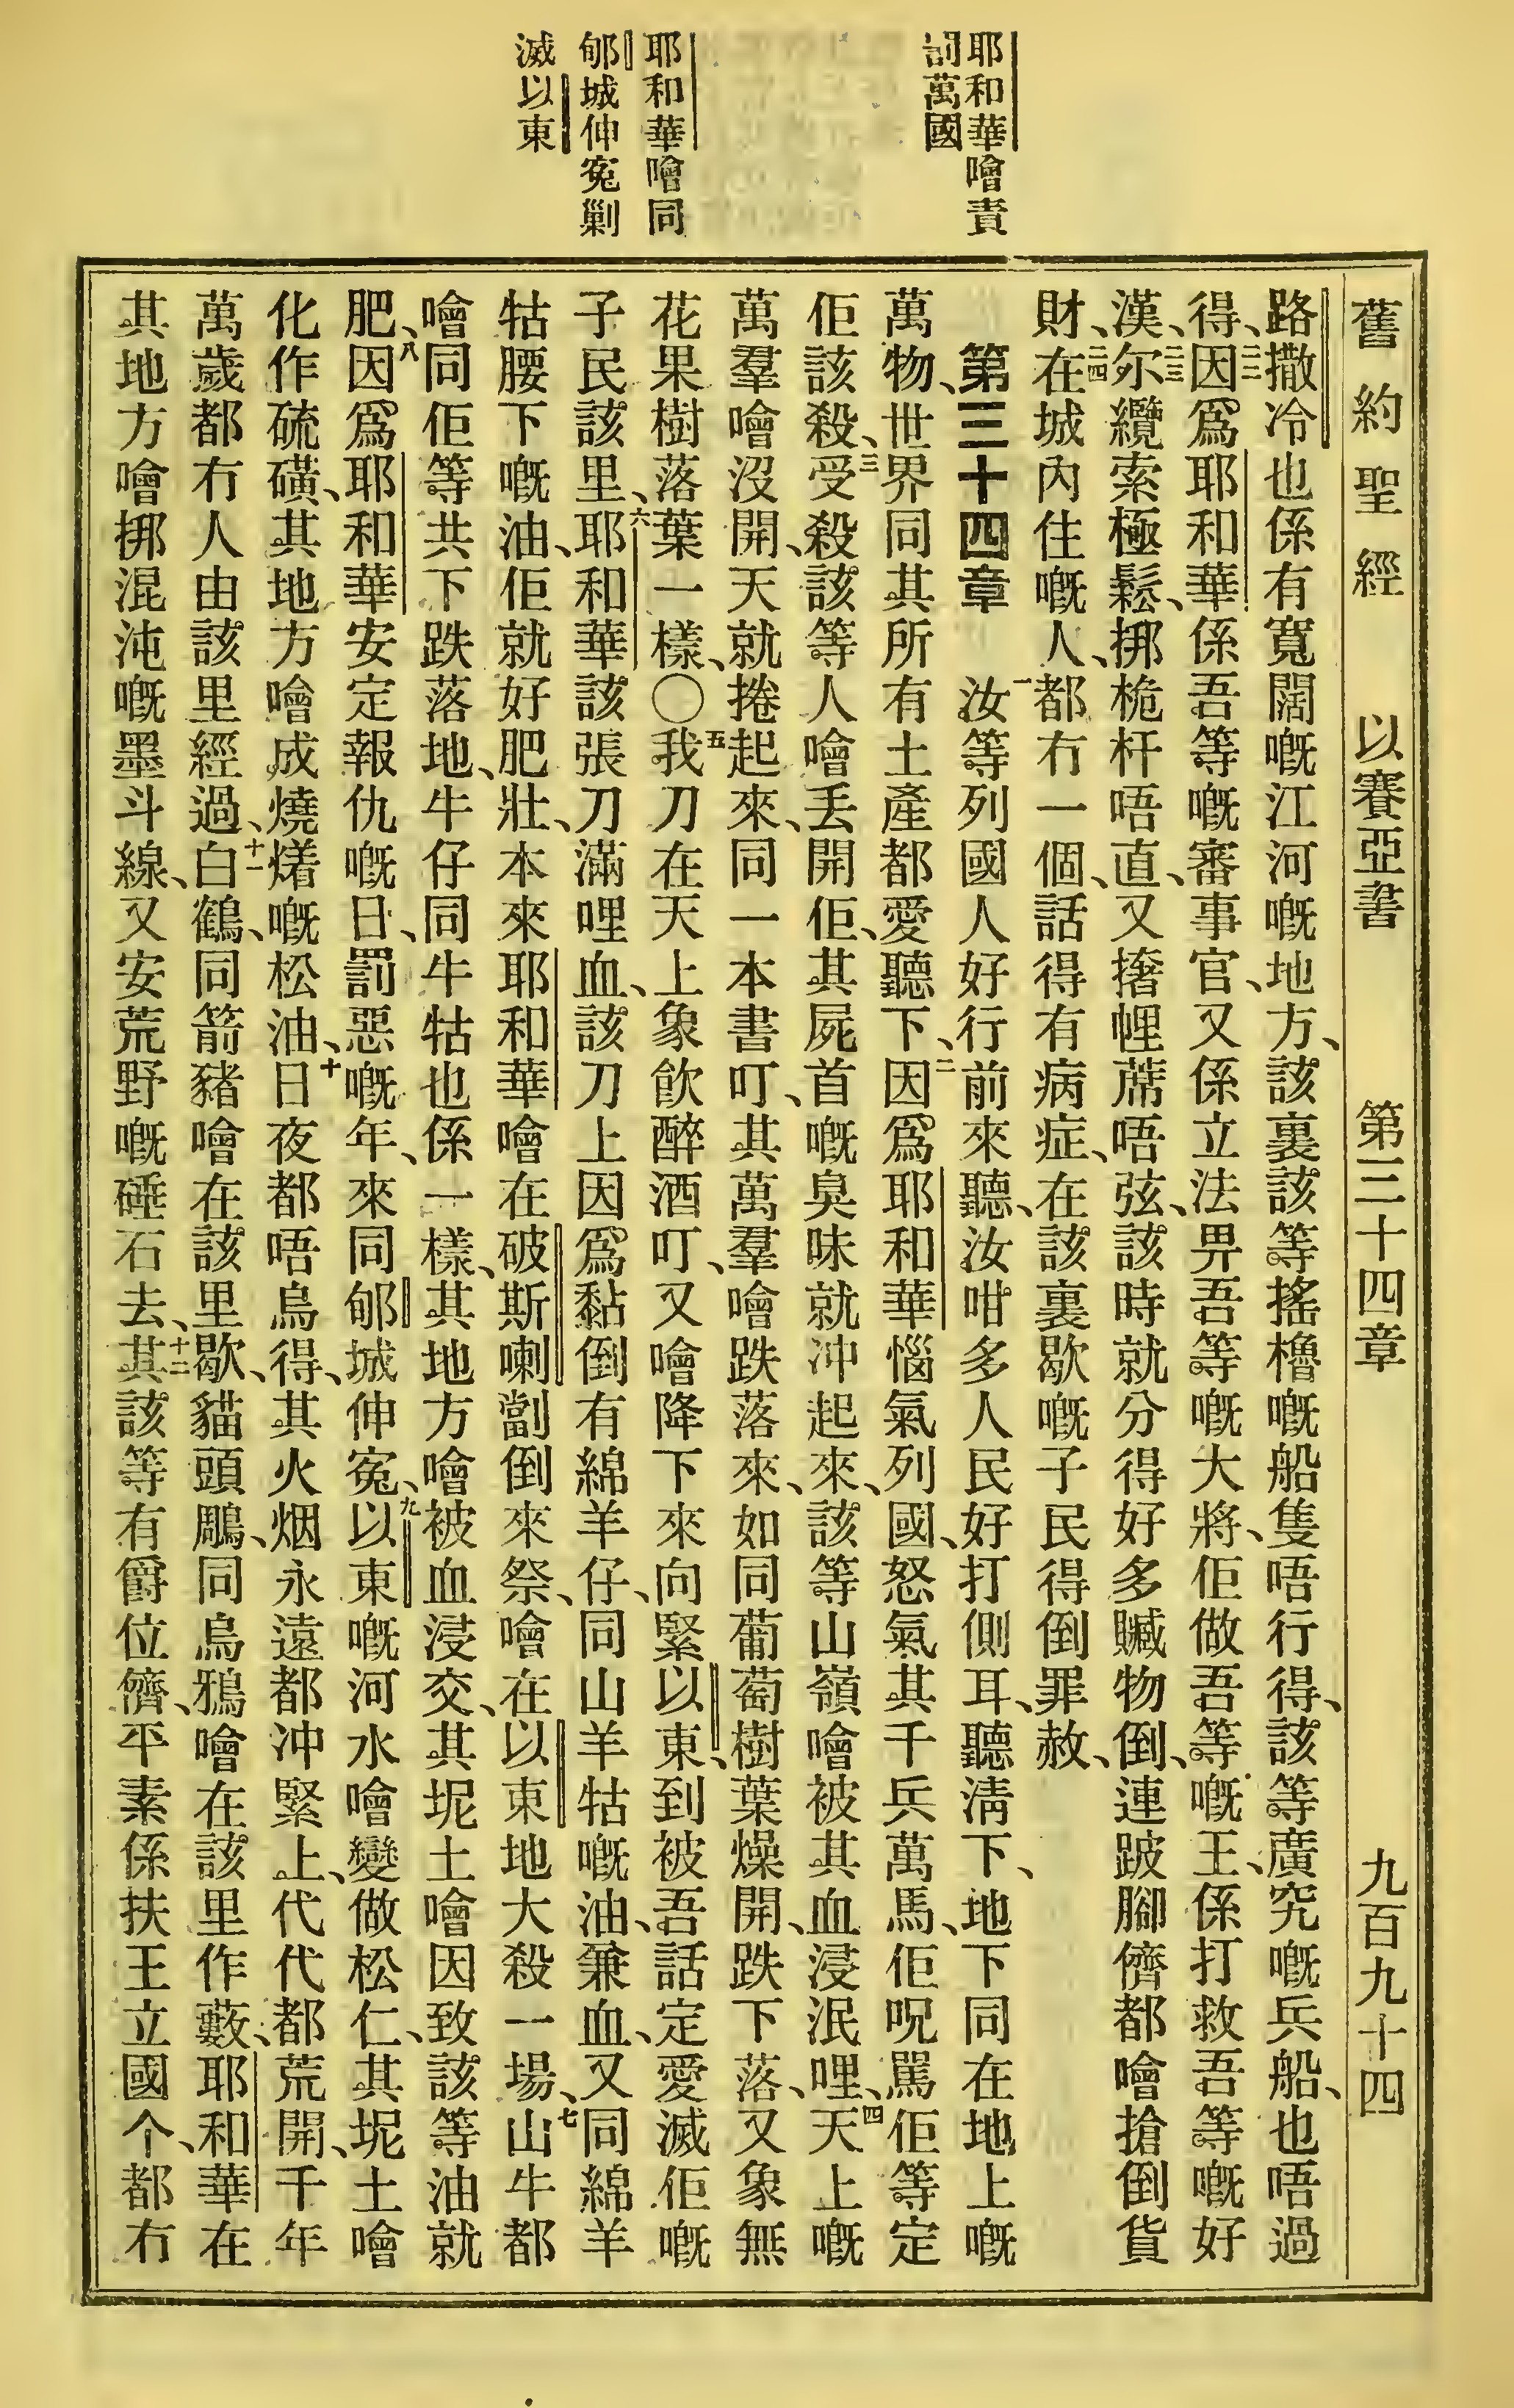 耶和華噲責
罰萬國
耶和華噲同
郇城伸寃剿
滅以東
舊約聖經 以賽亞書 第三十四章 九百九十四
路撒冷也係有寬闊嘅江河嘅地方、該裏該等搖櫓嘅船隻唔行得、該等廣究嘅兵船、也唔過
得、二二因爲耶和華係吾等嘅審事官、又係立法畀吾等嘅大將、佢做吾等嘅王、係打救吾等嘅好
漢、二三尔纜索極鬆、挷桅杆唔直、又撦𢃇蓆唔弦、該時就分得好多贓物倒、連跛腳儕都噲搶倒貨
財、二四在城內住嘅人、都冇一個、話得有病症、在該裏歇嘅子民得倒罪赦、
第三十四章 一汝等列國人好行前來聽、汝咁多人民好打側耳、聽淸下、地下同在地上嘅
萬物、世界同其所有土產都愛聽下、二因爲耶和華惱氣列國、怒氣其千兵萬馬、佢呪罵佢等定
佢該殺、三受殺該等人噲丢開佢、其屍首嘅臭味就沖起來、該等山嶺噲被其血浸泯哩、四天上嘅
萬羣噲沒開、天就捲起來、同一本書叮、其萬羣噲跌落來、如同葡萄樹葉燥開、跌下落、又象無
花果樹落葉一樣、〇五我刀在天上象飮醉酒叮、又噲降下來向緊以東、到被吾話定愛滅佢嘅
子民該里、六耶和華該張刀滿哩血、該刀上因爲黏倒有綿羊仔、同山羊牯嘅油、兼血、又同綿羊
牯腰下嘅油、佢就好肥壯、本來耶和華噲在破斯喇劏倒來祭、噲在以東地大殺一場、七山牛都
噲同佢等共下跌落地、牛仔同牛牯也係一樣、其地方噲被血浸交、其坭土噲因致該等油就
肥、八因爲耶和華安定報仇嘅日、罰惡嘅年、來同郇城伸寃、九以東嘅河水噲變做松仁、其坭土噲
化作硫磺、其地方噲成燒㷮嘅松油、十日夜都唔烏得、其火烟永遠都沖緊上、代代都荒開、千年
萬歲都冇人由該里經過、十一白鶴、同箭豬噲在該里歇、貓頭鵰、同烏鴉噲在該里作藪、耶和華在
其地方噲挷混沌嘅墨斗線、又安荒野嘅硾石去、十二其該等有爵位儕、平素係扶王立國个、都冇